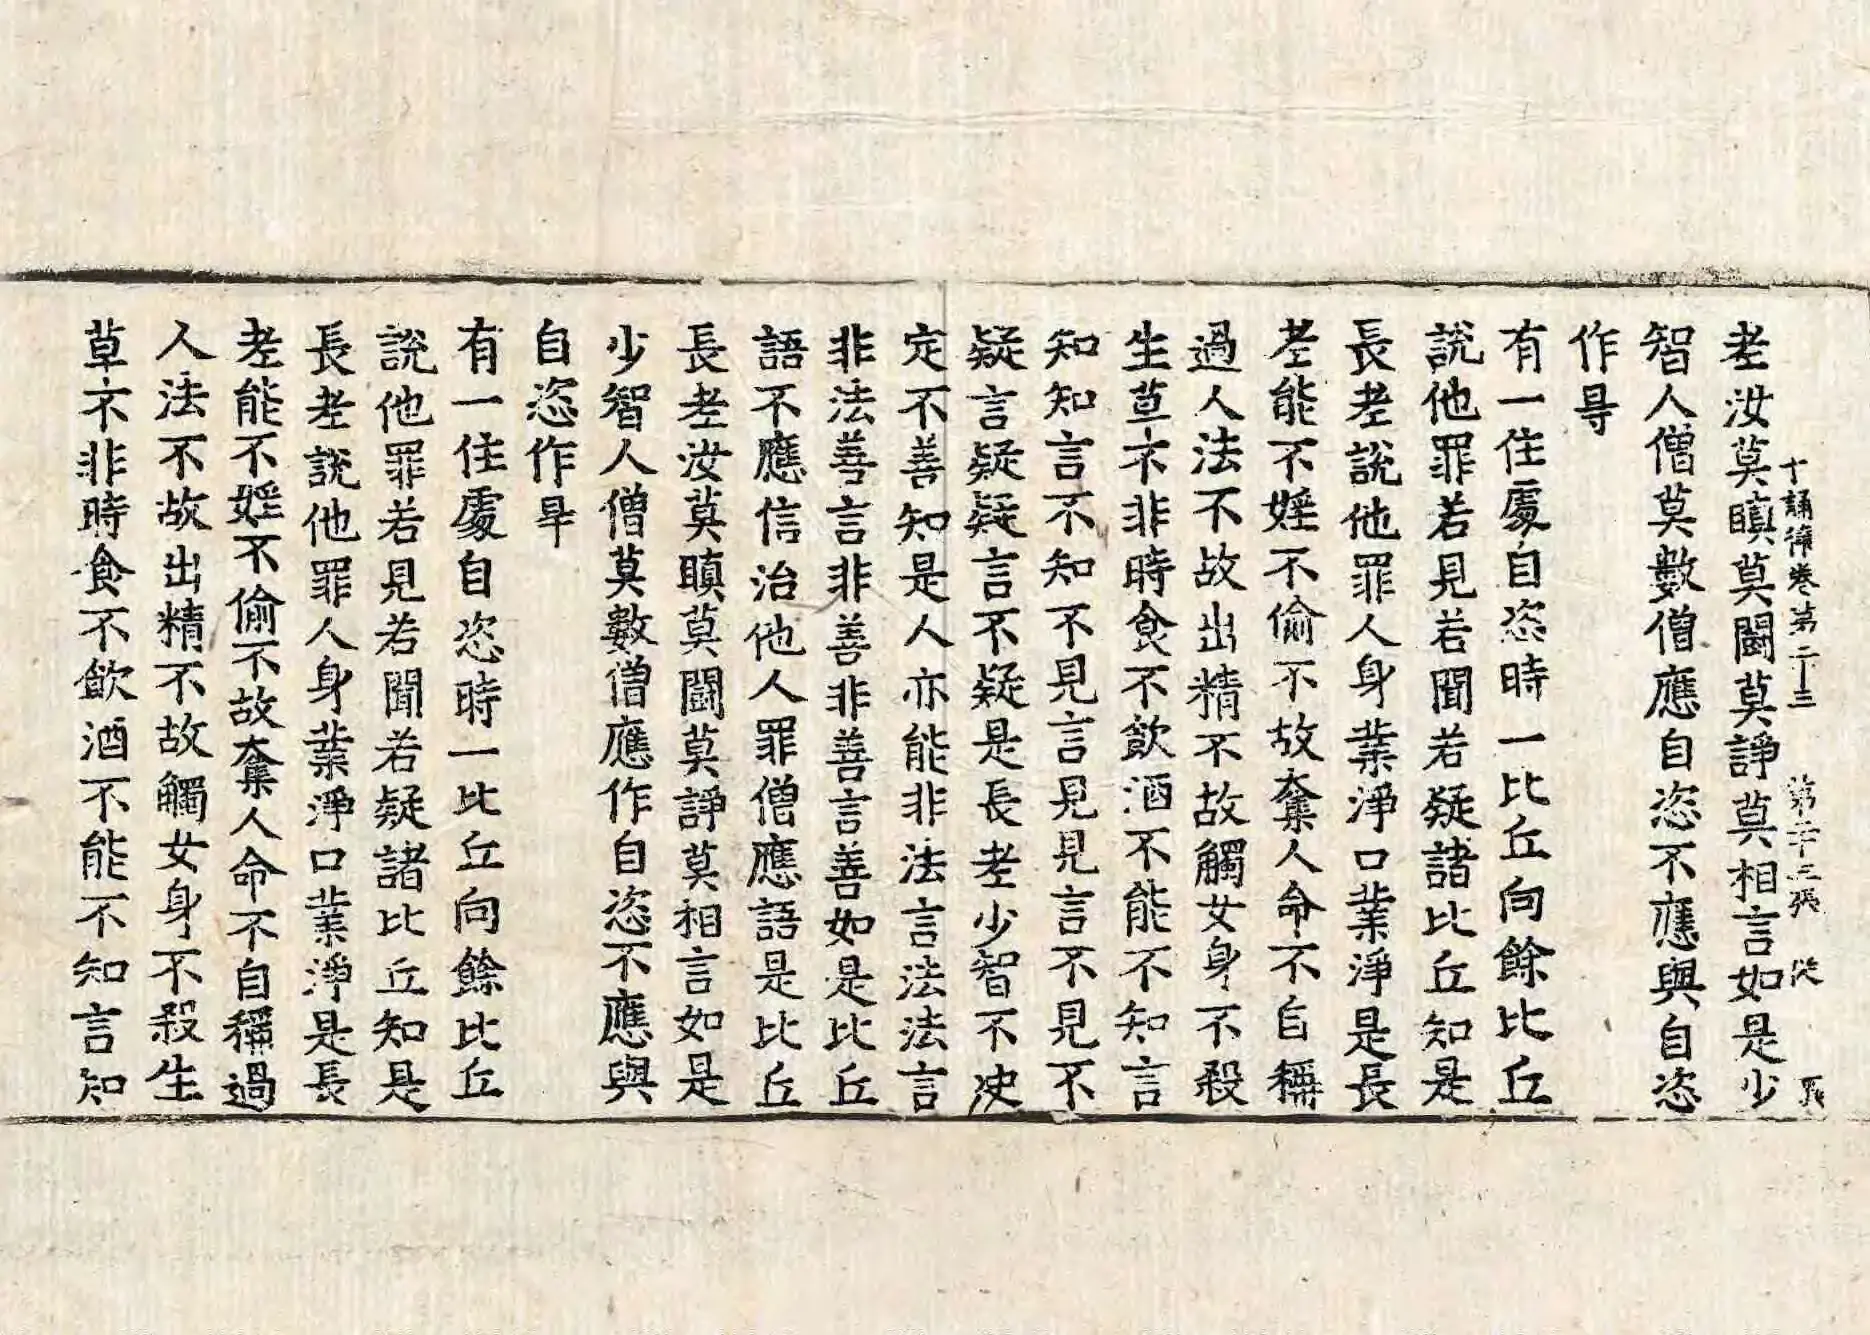 十誦律卷第二十三 第二十三張 從
老汝莫瞋莫鬪莫諍莫相言如是少
智人僧莫數僧應自恣不應與自恣
作㝵
有一住處自恣時一比丘向餘比丘
說他罪若見若聞若疑諸比丘知是
長老說他罪人身業淨口業淨是長
老能不婬不偷不故奪人命不自稱
過人法不故出精不故觸女身不殺
生草不非時食不飲酒不能不知言
知知言不知不見言見見言不見不
疑言疑疑言不疑是長老少智不決
定不善知是人亦能非法言法法言
非法善言非善非善言善如是比丘
語不應信治他人罪僧應語是比丘
長老汝莫瞋莫鬪莫諍莫相言如是
少智人僧莫數僧應作自恣不應與
自恣作㝵
有一住處自恣時一比丘向餘比丘
說他罪若見若聞若疑諸比丘知是
長老說他罪人身業淨口業淨是長
老能不婬不偷不故奪人命不自稱過
人法不故出精不故觸女身不殺生
草不非時食不飲酒不能不知言知